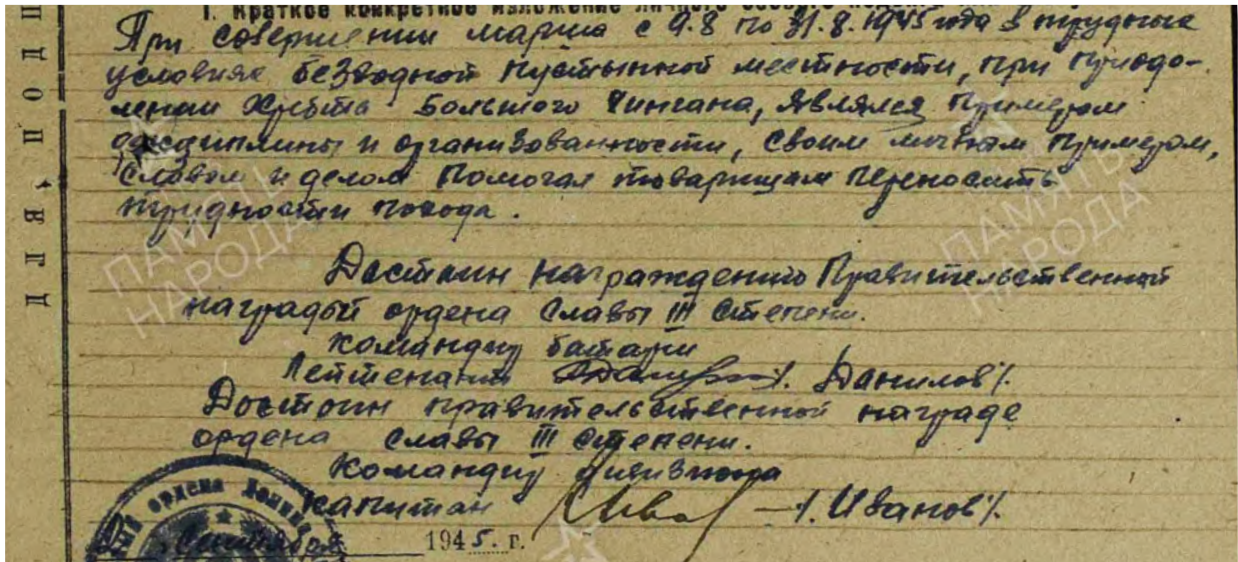 I. Краткое конкретное изложение личного
При совершении марша с 9.8 по 31.8.1945 года в трудных
условиях безводной пустынной местности, при приодо-
лении Хребта Большого Хингана, являлся примером
дисциплины и организованности, своим личным примером,
словом и делом помогал товарищам переносить
трудности похода.
Достоин награждению Правительственной
наградой ордена Славы III степени.
Командир батареи
Лейтенант /. Данилов /.
Достоин правительственной награде
ордена Славы III степени.
Командир дивизиона
Капитан /. Иванов /.
ордена Ленина
Сентября 1945. г.
ДЛЯ ПОД
ПАМЯТЬ
НАРОДА
ПАМЯТЬ
НАРОДА